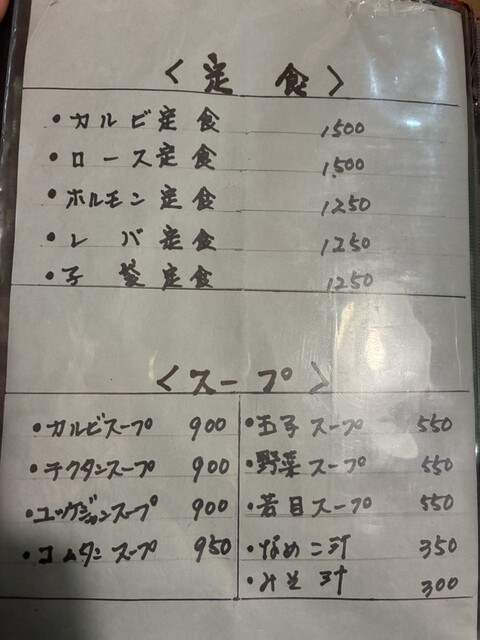 〈定 食〉
・カルビ定食 1500
・ロース定食 1,500
・ホルモン定食 1250
・レバ定食 1250
・子袋定食 1250
〈スープ〉
・カルビスープ 900
・テクタンスープ 900
・ユッケジャンスープ 900
・コムタンスープ 950
・玉子スープ 550
・野菜スープ 550
・若目スープ 550
・なめこ汁 350
・みそ汁 300